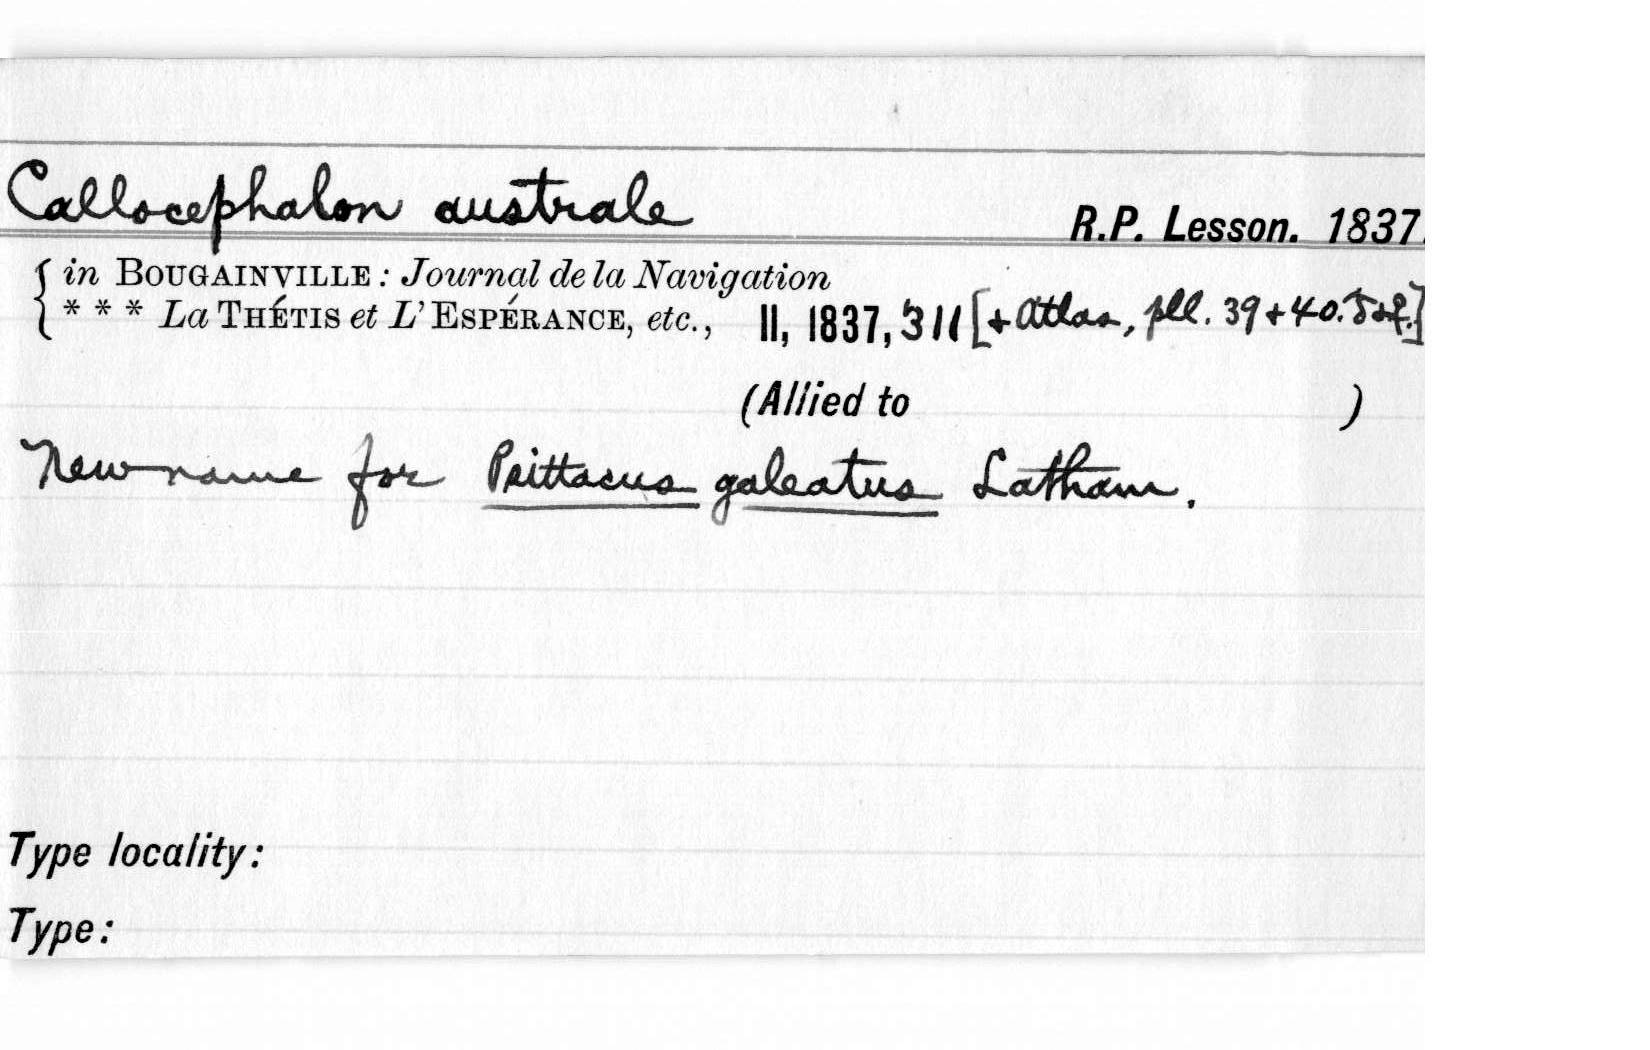 Callocephalon australe R.P. Lesson. 1837.
in BOUGAINVILLE: Journal de la Navigation
* * * La THÉTIS et L'ESPÉRANCE, etc., II, 1837, 311 [+ Atlas, pll. 39 + 40. ♂ + ♀.]
(Allied to )
New name for Psittacus galeatus Latham.
Type locality:
Type: